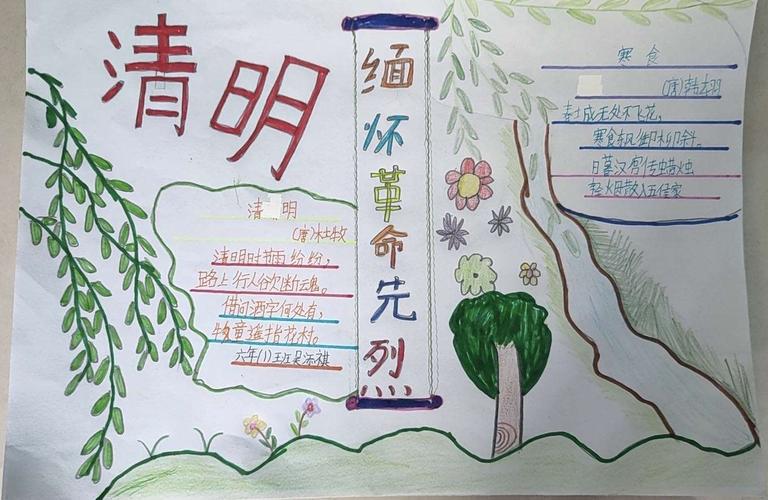 清明
清明
(唐)杜牧
清明时节雨纷纷,
路上行人欲断魂。
借问酒家何处有,
牧童遥指杏花村。
六年(1)班
缅怀革命先烈
寒食
(唐)韩翃
春城无处不飞花,
寒食东风御柳斜。
日暮汉宫传蜡烛
轻烟散入五侯家